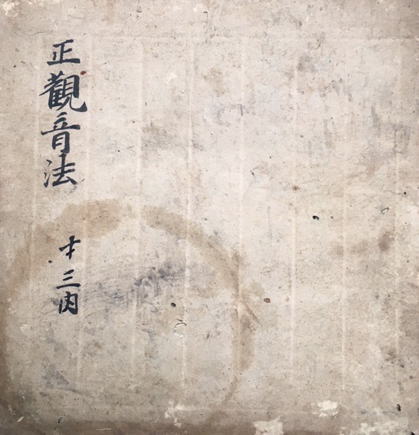 正觀音法
十三内